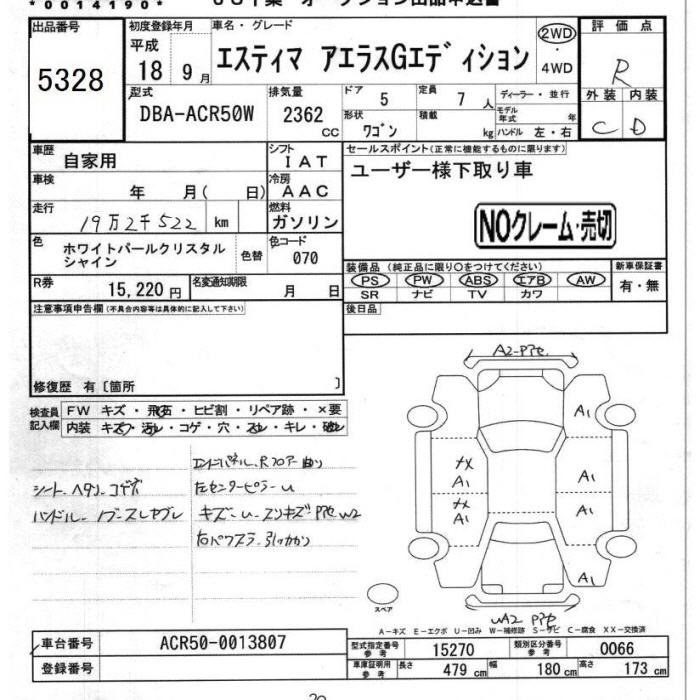 *0014190*
出品番号
5328
初度登録年月
平成
18 9月
車名・グレード
エスティマ アエラスGエディション
2WD
・
4WD
評価点
R
外装 内装
C D
型式
DBA-ACR50W
排気量
2362
CC
ドア
5
定員
7 人
ディーラー・並行
形状
ワゴン
積載
kg
モデル年式 年
ハンドル 左・右
車歴
自家用
シフト
IAT
セールスポイント(正常に機能するものに限ります)
ユーザー様下取り車
車検
年 月( 日)
冷房
AAC
走行
19万2千522 km
燃料
ガソリン
NOクレーム・売切
色
ホワイトパールクリスタル
シャイン
色替
色コード
070
装備品 (純正品に限り○をつけてください)
PS PW ABS エアB AW
SR ナビ TV カワ
新車保証書
有・無
R券
15,220 円
名変通知期限
月 日
後日品
注意事項申告欄(不具合内容等は具体的に記入して下さい)
修復歴 有〔箇所 〕
検査員
記入欄
FW キズ・飛石・ヒビ割・リペア跡・×要
内装 キズ・汚れ・コゲ・穴・スレ・キレ・破れ
シート ヘタリ コゲ穴
エンドパネル、Rフロアー曲り
左センターピラーU
キズ・U・スリキズ
A2
A1
A1
メX
A1
メX
A1
A1
A1
UA2
スペア
A-キズ E-エクボ U-凹み W-補修跡 S-サビ C-腐食 XX-交換済
車台番号
ACR50-0013807
登録番号
型式指定番号
参考
15270
類別区分番号
参考
0066
車庫証明用
参考
長さ 479 cm 幅 180 cm 高さ 173 cm